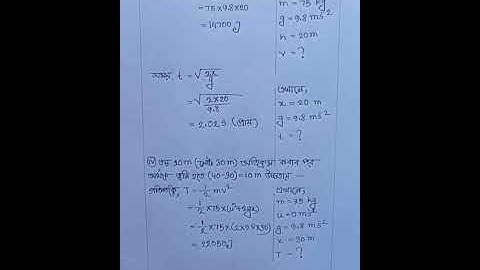 = 75×9.8×20
= 14700 J
m = 75 kg
g = 9.8 ms²
h = 20m
v = ?
আবার, t = √2x/g
= √2×20/9.8
= 2.02 s (প্রায়)
এখানে,
x = 20 m
g = 9.8 ms²
t = ?
30 m) অতিক্রম করার পর
হতে (40-30) = 10 m উচ্চতায় —
গতিশক্তি, T = ½ mv²
= ½ ×75×(u²+2gx)
= ½ ×75×(2×9.8×30)
= 22050 J
এখানে,
m = 75 kg
u = 0 ms¹
g = 9.8 ms²
x = 30m
T = ?